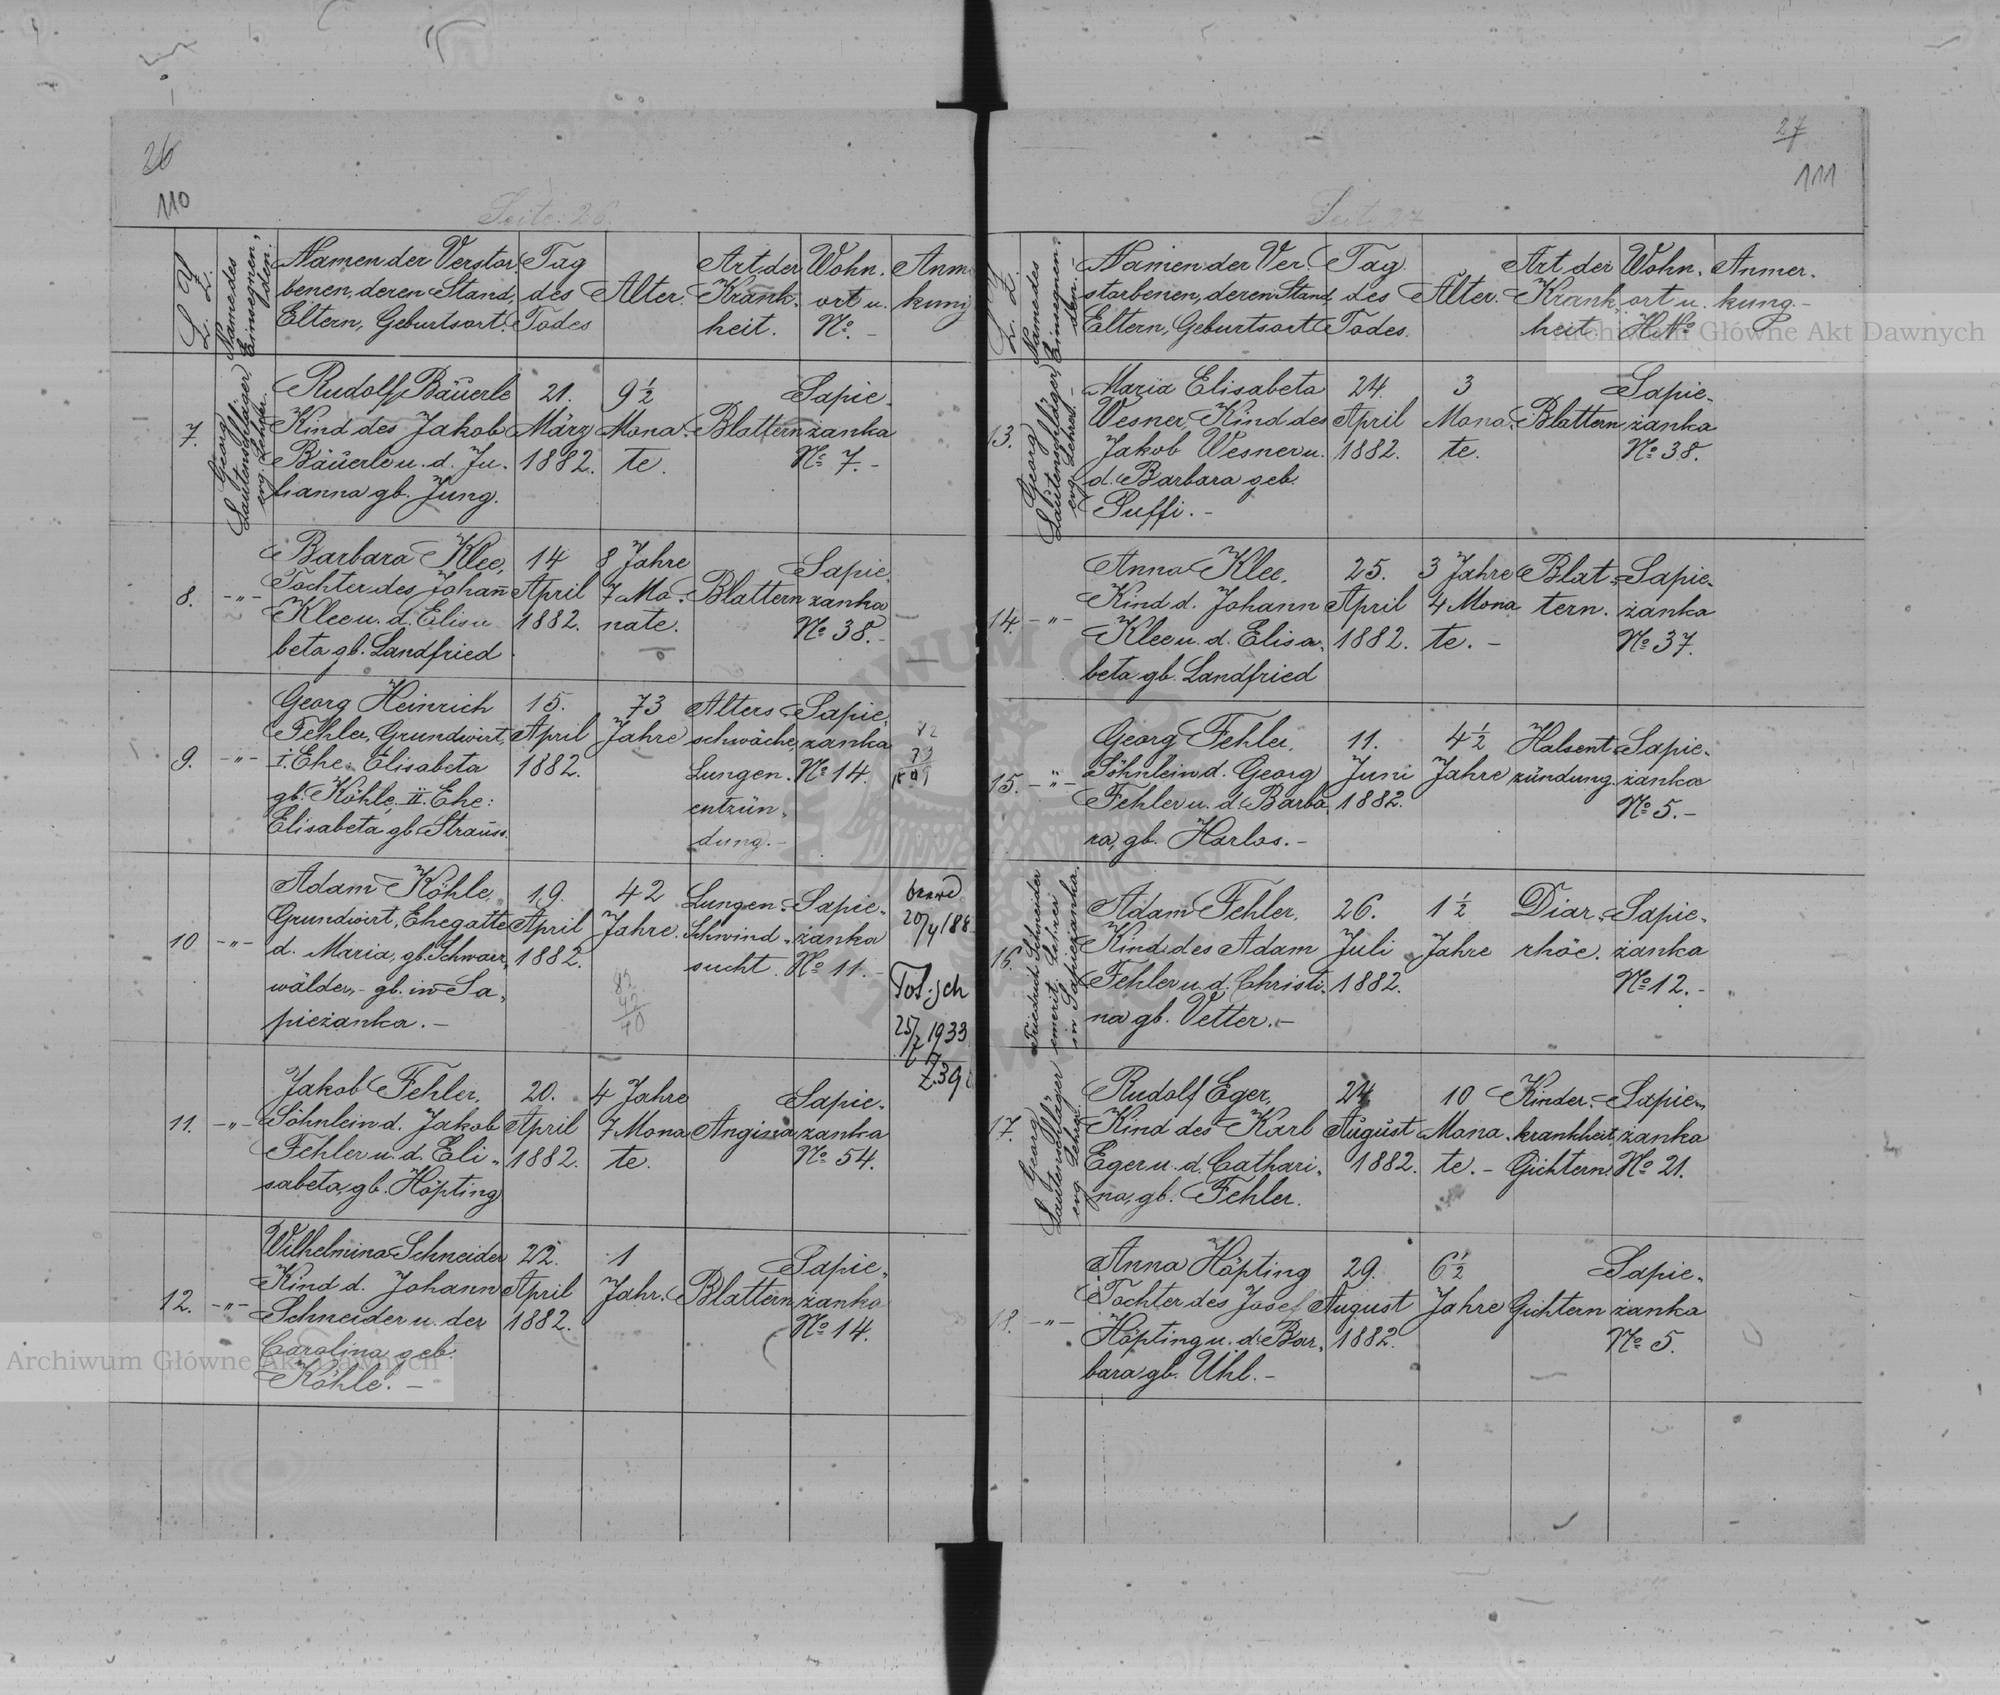 26
110
Seite: 26.
L. Z.
Name des
Einsegnen-
den.
Namen der Verstor-
benen, deren Stand,
Eltern, Geburtsort.
Tag
des
Todes
Alter.
Art der
Krank-
heit.
Wohn-
ort u.
No. -
Anm
kung
7.
Georg
Lautenschläger,
evg. Lehrer.
Rudolf Bäuerle
Kind des Jakob
Bäuerle u. d. Ju-
hanna gb. Jung.
21.
März
1882.
9 1/2
Mona-
te.
Blattern
Sapie-
żanka
No 7. -
8.
-"-
Barbara Klee,
Tochter des Johann
Klee u. d. Elisa
beta gb. Landfried
14
April
1882.
8 Jahre
7 Mo-
nate.
Blattern
Sapie-
żanka
No 38. -
9.
-"-
Georg Heinrich
Fehler, Grundwirt,
I. Ehe: Elisabeta
gb. Köhle, II. Ehe:
Elisabeta gb. Strauss.
15.
April
1882.
73
Jahre
Alters-
schwäche,
Lungen-
entzün-
dung. -
Sapie-
żanka
No 14.
82
73
1809
10
-"-
Adam Köhle,
Grundwirt, Ehegatte
d. Maria, gb. Schwarz-
wälder, - gb. in Sa-
pieżanka. -
19.
April
1882.
42
Jahre.
82
42
40
Lungen-
schwind-
sucht.
Sapie-
żanka
No 11. -
20/4 188
Tot. sch
25/7 1933
Z. 39
11.
-"-
Jakob Fehler,
Söhnlein d. Jakob
Fehler u. d. Eli-
sabeta, gb. Höpting
20.
April
1882.
4 Jahre
7 Mona
te.
Angina
Sapie-
żanka
No 54.
12.
-"-
Wilhelmina Schneider
Kind d. Johann
Schneider u. der
Carolina geb.
Köhle. -
22.
April
1882.
1
Jahr.
Blattern
Sapie-
żanka
No 14.
Archiwum Główne Akt Dawnych
27
111
Seite 27
L. Z.
Name des
Einsegnen-
den. -
Namen der Ver-
storbenen, deren Stand,
Eltern, Geburtsort
Tag
des
Todes.
Alter.
Art der
Krank-
heit.
Wohn-
ort u.
H. No
Anmer-
kung. -
Archiwum Główne Akt Dawnych
13.
Georg
Lautenschläger,
evg. Lehrer. -
Maria Elisabeta
Wesner, Kind des
Jakob Wesner u.
d. Barbara geb.
Puffi. -
24.
April
1882.
3
Mona-
te.
Blattern
Sapie-
żanka
No 38.
14.
-"-
Anna Klee,
Kind d. Johann
Klee u. d. Elisa-
beta gb. Landfried
25.
April
1882.
3 Jahre
4 Mona
te. -
Blat-
tern.
Sapie-
żanka
No 37.
15.
-"-
Georg Fehler,
Söhnlein d. Georg
Fehler u. d. Barba-
ra, gb. Harlos. -
11.
Juni
1882.
4 1/2
Jahre
Halsent-
zündung.
Sapie-
żanka
No 5. -
16.
Friedrich Schneider
emerit. Lehrer
in Sapieżanka.
Adam Fehler,
Kind des Adam
Fehler u. d. Christi-
na gb. Vetter. -
26.
Juli
1882.
1 1/2
Jahre
Diar-
rhöe.
Sapie-
żanka
No 12. -
17.
Georg
Lautenschläger
evg. Lehrer
Rudolf Eger,
Kind des Karl
Eger u. d. Cathari-
na, gb. Fehler.
24
August
1882.
10
Mona-
te. -
Kinder-
krankheit,
Gichtern.
Sapie-
żanka
No 21.
18.
-"-
Anna Höpting
Tochter des Josef
Höpting u. d. Bar-
bara gb. Uhl. -
29.
August
1882.
6 1/2
Jahre
Gichtern
Sapie-
żanka
No 5.